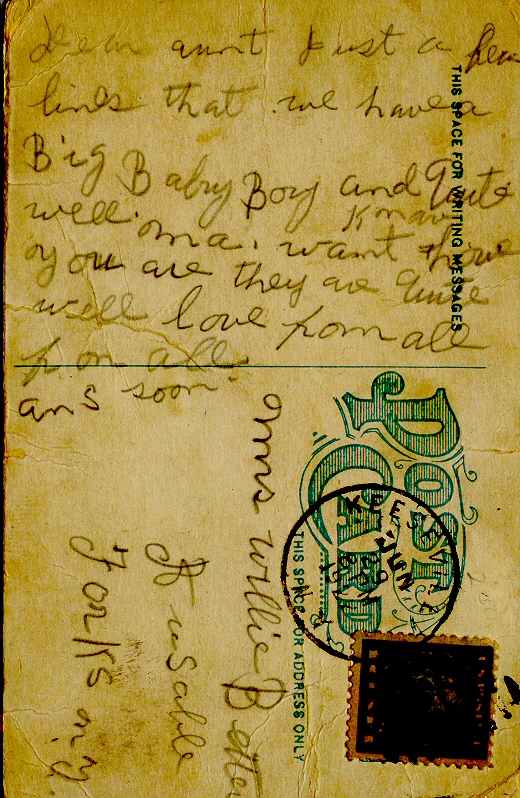 Dear aunt Just a few
lines that we have a
Big Baby Boy and Quite
well. ma. want know how
you are they are Quite
well love from all
from all.
ans soon
THIS SPACE FOR WRITING MESSAGES
POST
CARD
THIS SPACE FOR ADDRESS ONLY
JUN
Mrs Willie
Ausable
Forks n.y.